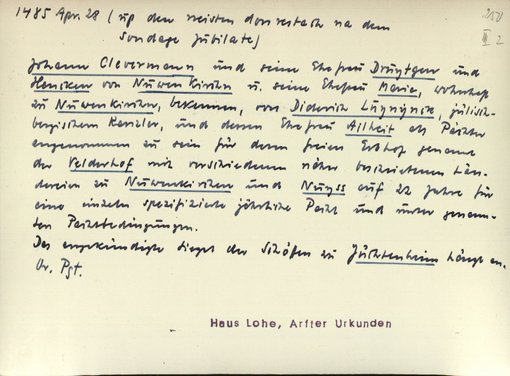 1485 Apr. 28 (up den neisten donrestach na dem
Sondage Jubilate)
250
II 2
Johann Clevermann und seine Ehefrau Druytgen und
Henken von Nuwenkirchen u. seine Ehefrau Maria, wohnhaft
zu Nuwenkirchen, bekennen, von Diderich Lunynck, jülisch-
bergischem Kanzler, und dessen Ehefrau Allheit als Pächter
angenommen zu sein für deren freien Erbhof genannt
der Velderhof mit verschiedenen näher beschriebenen Län-
dereien zu Nuwenkirchen und Nuyss auf 22 Jahre für
eine einzeln spezifizierte jährliche Pacht und unter genann-
ten Pachtbedingungen.
Das angekündigte Siegel der Schöffen zu Jüchtenheim hängt an.
Or. Pgt.
Haus Lohe, Arfter Urkunden